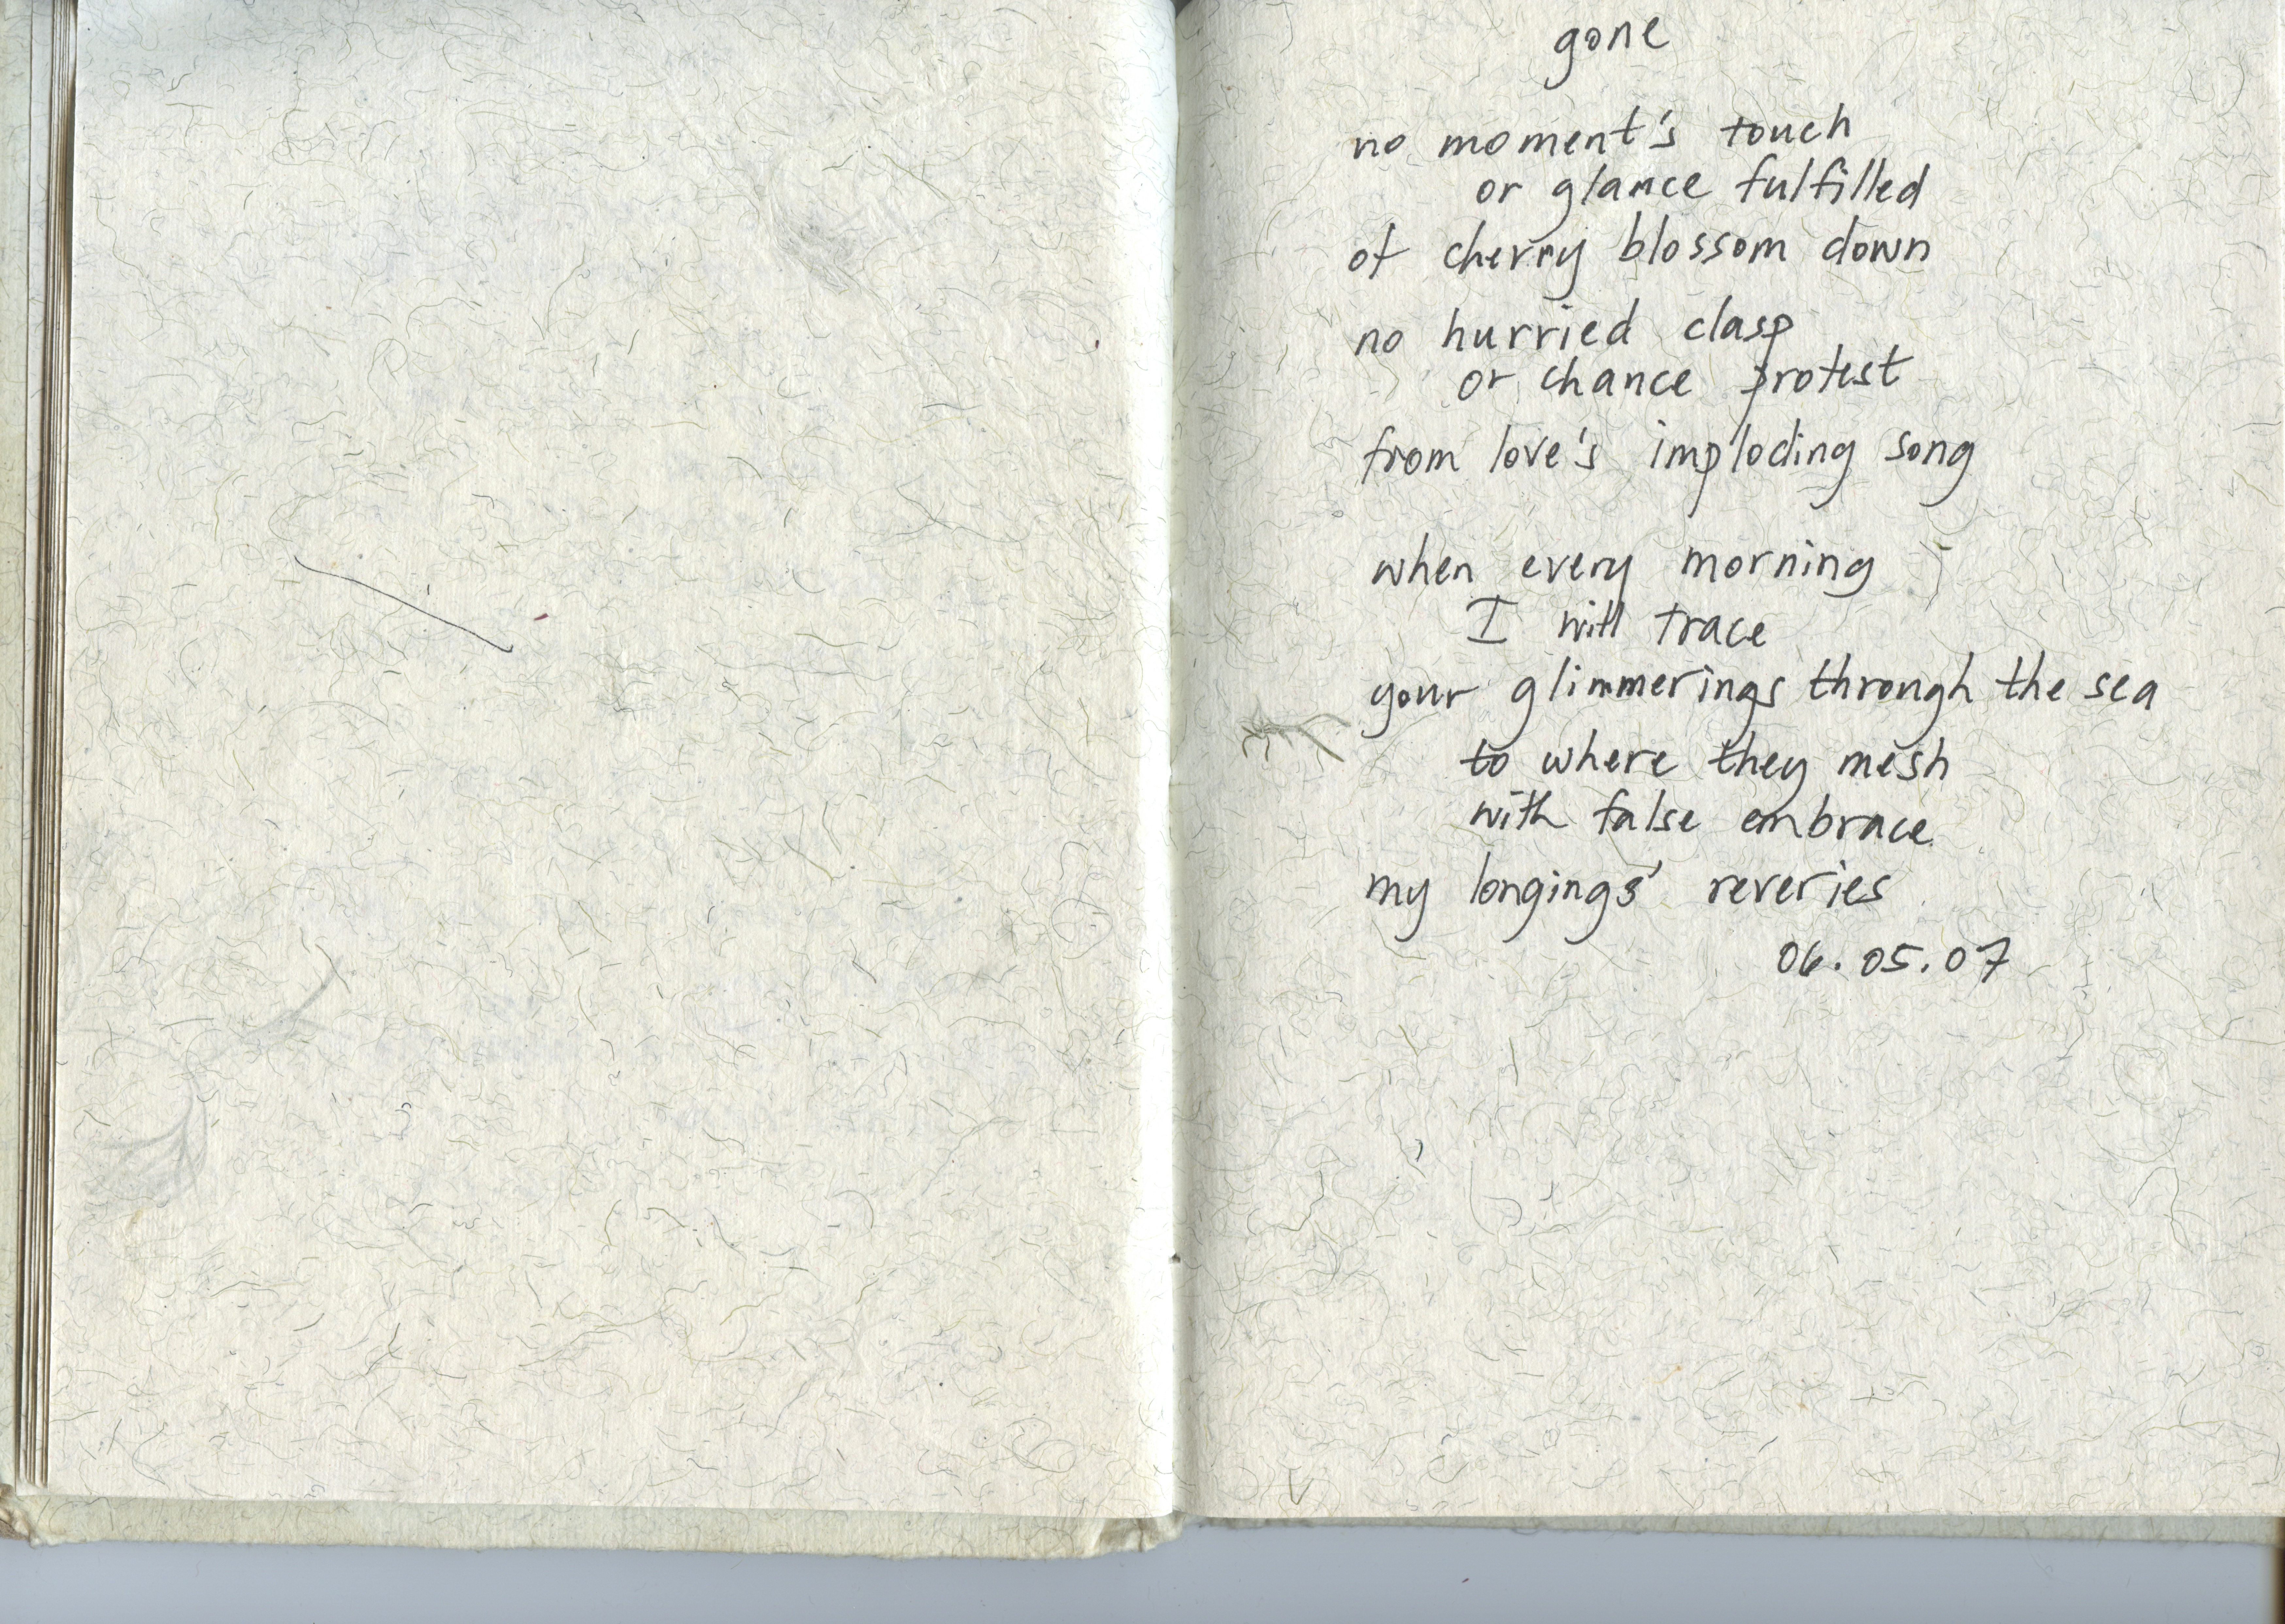 gone
no moment's touch
or glance fulfilled
of cherry blossom down
no hurried clasp
or chance protest
from love's imploding song
when every morning
I will trace
your glimmerings through the sea
to where they mesh
with false embrace
my longings' reveries
06.05.07